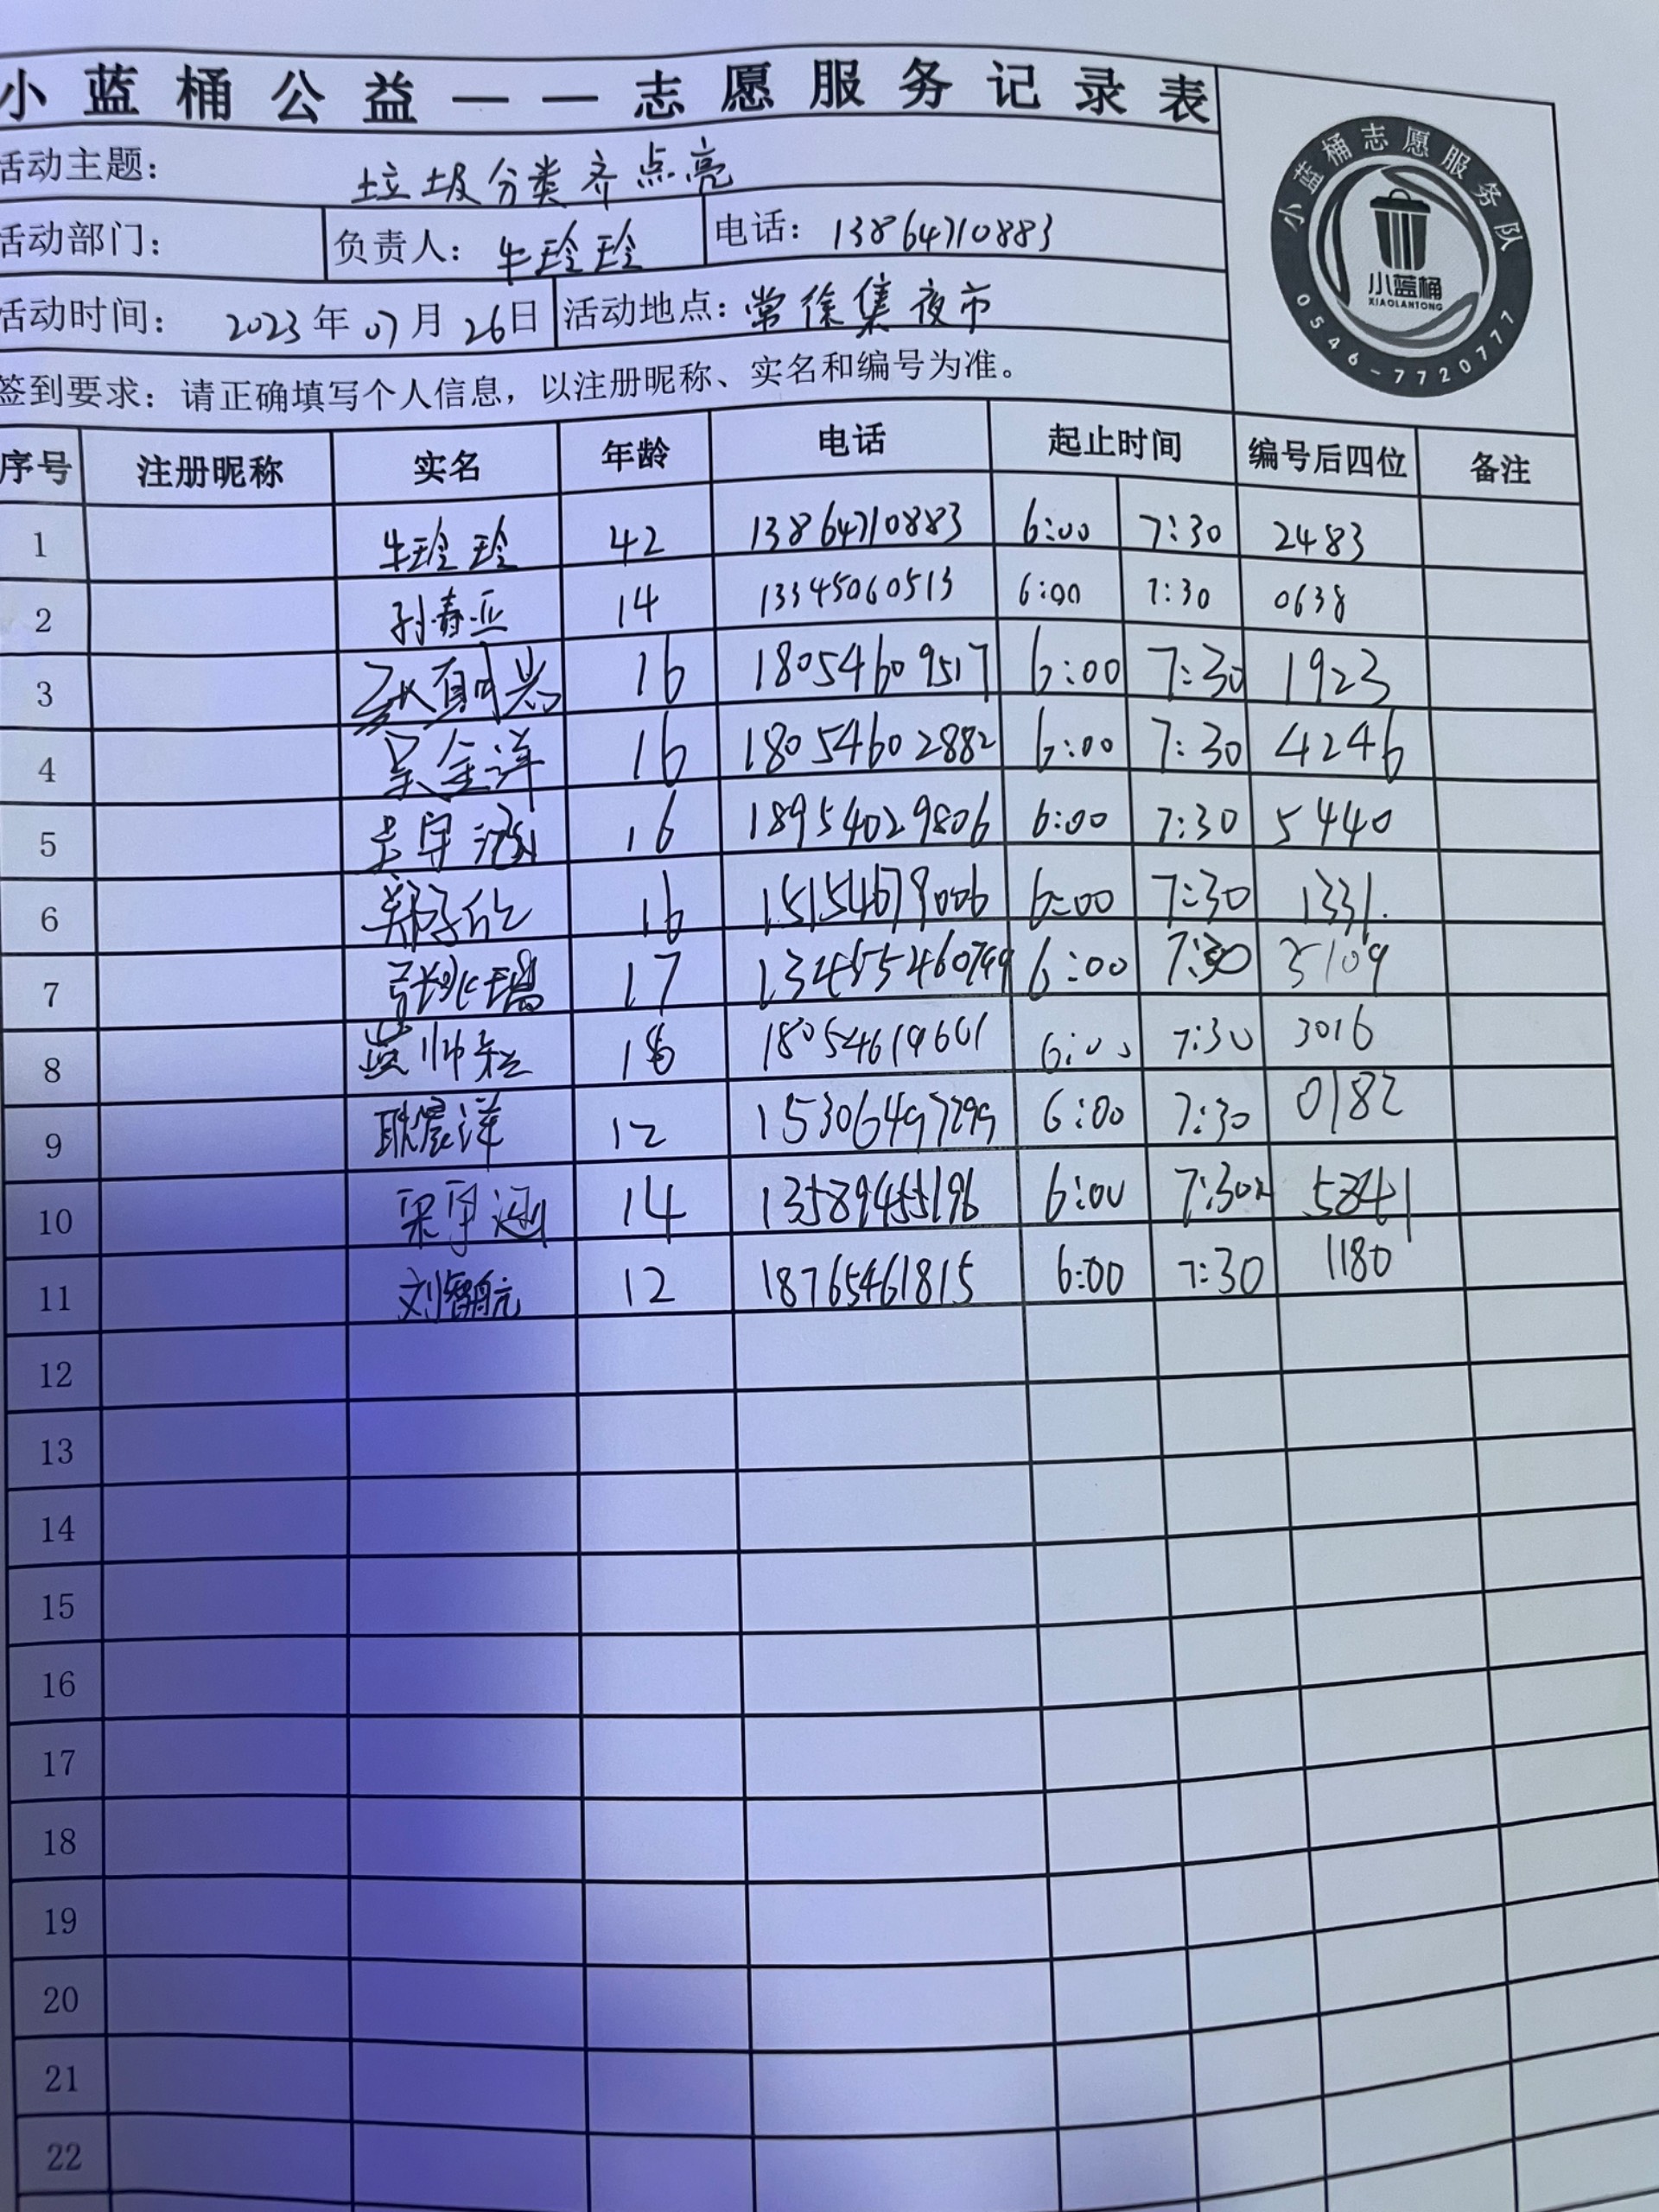 小蓝桶公益——志愿服务记录表
小蓝桶志愿服务队
小蓝桶
XIAOLANTONG
0546-7720777
活动主题: 垃圾分类齐点亮
活动部门: 负责人: 牛玲玲 电话: 13864710883
活动时间: 2023年07月26日 活动地点: 常徐集夜市
签到要求: 请正确填写个人信息, 以注册昵称、实名和编号为准。
序号 注册昵称 实名 年龄 电话 起止时间 编号后四位 备注
1 牛玲玲 42 13864710883 6:00 7:30 2483
2 孙春亚 14 13345060513 6:00 7:30 0638
3 16 18054609517 6:00 7:30 1923
4 吴金洋 16 18054602882 6:00 7:30 4246
5 16 18954029806 6:00 7:30 5440
6 16 15154679006 6:00 7:30 1331.
7 17 6:00 7:30 3109
8 18054619601 6:00 7:30 3016
9 耿宸洋 12 15306497299 6:00 7:30 0182
10 梁宇涵 14 13589455196 6:00 7:30 5841
11 刘智航 12 18765461815 6:00 7:30 1180
12
13
14
15
16
17
18
19
20
21
22